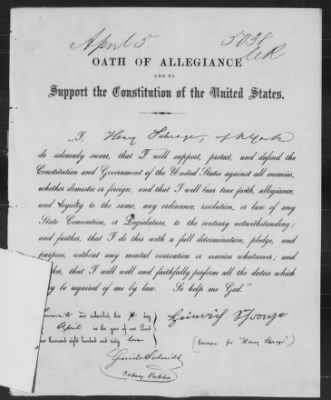 April 5 5038
OATH OF ALLEGIANCE
AND TO
Support the Constitution of the United States.
"I, Henry of N York
do solemnly swear, that I will support, protect, and defend the
Constitution and Government of the United States against all enemies,
whether domestic or foreign, and that I will bear true faith, allegiance,
and loyalty to the same, any ordinance, resolution, or law of any
State Convention, or Legislature, to the contrary notwithstanding;
and further, that I do this with a full determination, pledge, and
purpose, without any mental reservation or evasion whatsoever; and
, that I will well and faithfully perform all the duties which
be required of me by law. So help me God."
and subscribed this day Heinrich
April in the year of our Lord
one thousand eight hundred and sixty two
Notary Public